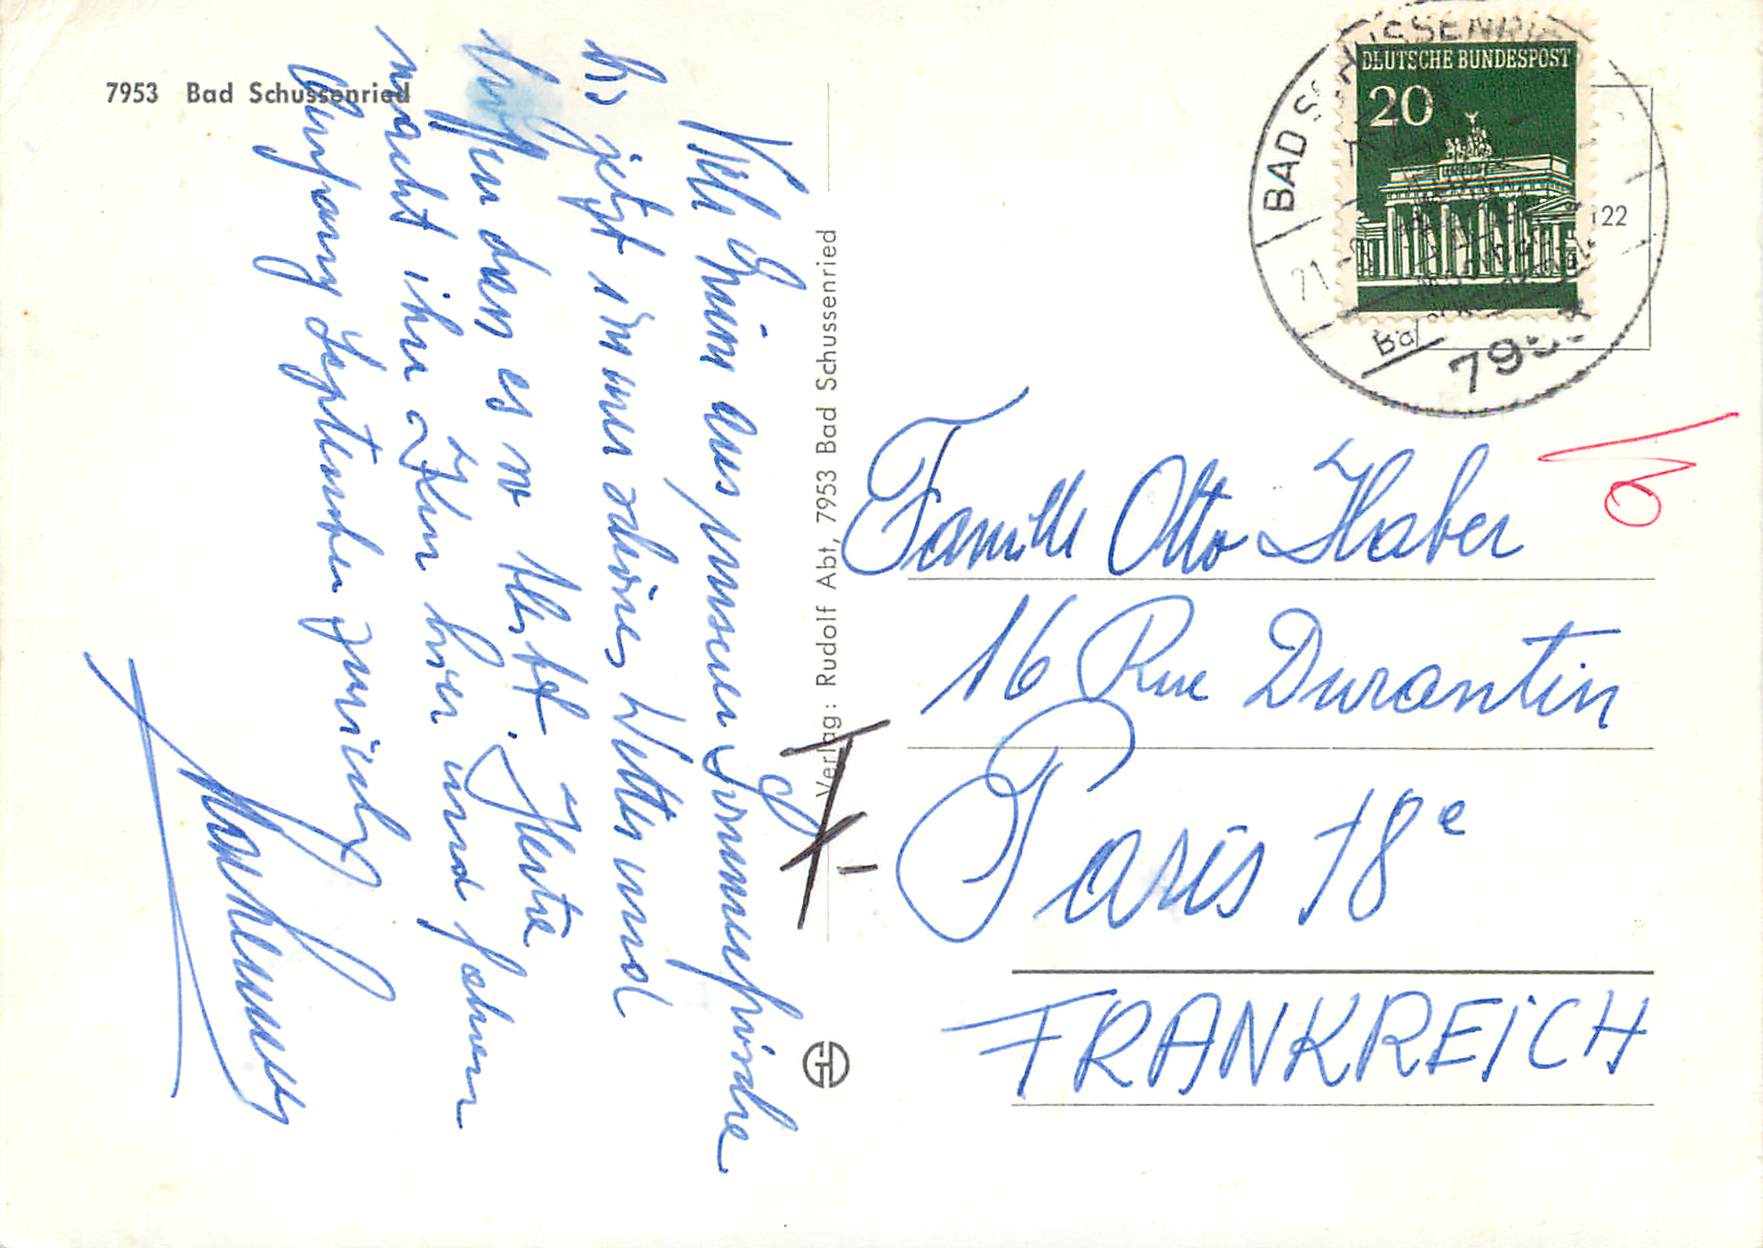 7953 Bad Schussenried
Viele Grüsse aus unserer Sommerfrische
bis jetzt immer schönes Wetter und
hoffen das es so bleibt. Herta
macht ihre Kur hier und fahren
Anfang September zurück
Verlag: Rudolf Abt, 7953 Bad Schussenried
DEUTSCHE BUNDESPOST
20
BAD SCHUSSENRIED
21.-8
7953
122
T
Famille Otto Haber
16 Rue Durantin
Paris 18e
FRANKREICH